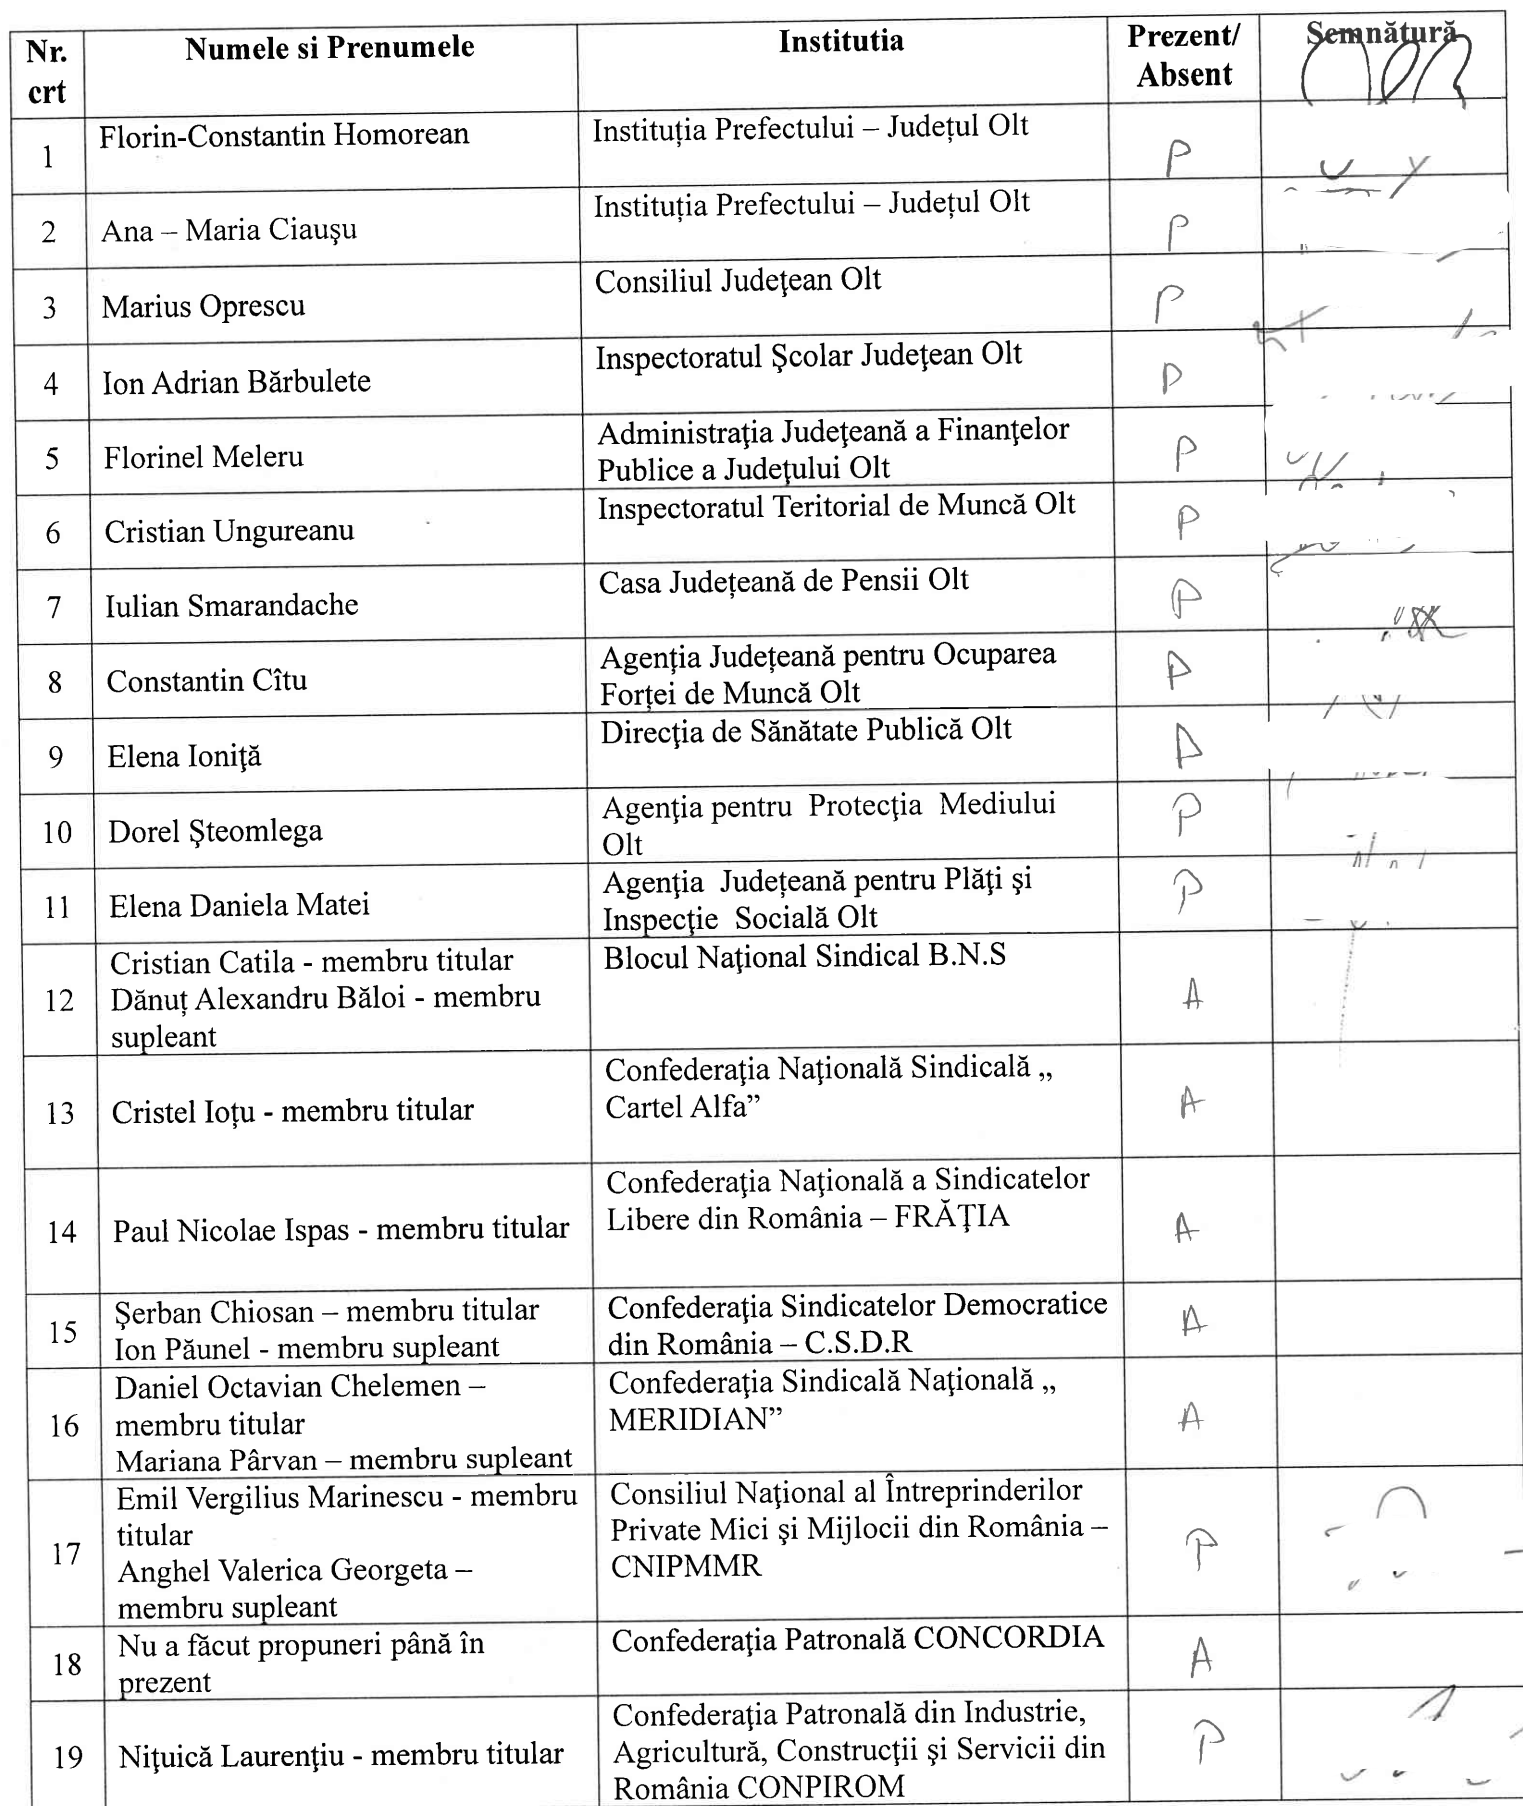 Nr. crt Numele si Prenumele Institutia Prezent/ Absent Semnătură
1 Florin-Constantin Homorean Instituția Prefectului – Județul Olt P
2 Ana – Maria Ciaușu Instituția Prefectului – Județul Olt P
3 Marius Oprescu Consiliul Judeţean Olt P
4 Ion Adrian Bărbulete Inspectoratul Şcolar Judeţean Olt P
5 Florinel Meleru Administraţia Judeţeană a Finanţelor
Publice a Judeţului Olt P
6 Cristian Ungureanu Inspectoratul Teritorial de Muncă Olt P
7 Iulian Smarandache Casa Județeană de Pensii Olt P
8 Constantin Cîtu Agenția Județeană pentru Ocuparea
Forței de Muncă Olt P
9 Elena Ioniţă Direcţia de Sănătate Publică Olt P
10 Dorel Şteomlega Agenţia pentru Protecţia Mediului
Olt P
11 Elena Daniela Matei Agenţia Județeană pentru Plăţi şi
Inspecţie Socială Olt P
12 Cristian Catila - membru titular
Dănuț Alexandru Băloi - membru
supleant
Blocul Naţional Sindical B.N.S A
13 Cristel Ioțu - membru titular Confederaţia Naţională Sindicală „
Cartel Alfa” A
14 Paul Nicolae Ispas - membru titular Confederaţia Naţională a Sindicatelor
Libere din România – FRĂŢIA A
15 Şerban Chiosan – membru titular
Ion Păunel - membru supleant
Confederaţia Sindicatelor Democratice
din România – C.S.D.R A
16 Daniel Octavian Chelemen –
membru titular
Mariana Pârvan – membru supleant
Confederaţia Sindicală Naţională „
MERIDIAN” A
17 Emil Vergilius Marinescu - membru
titular
Anghel Valerica Georgeta –
membru supleant
Consiliul Naţional al Întreprinderilor
Private Mici şi Mijlocii din România –
CNIPMMR P
18 Nu a făcut propuneri până în
prezent
Confederaţia Patronală CONCORDIA A
19 Niţuică Laurenţiu - membru titular Confederaţia Patronală din Industrie,
Agricultură, Construcţii şi Servicii din
România CONPIROM P